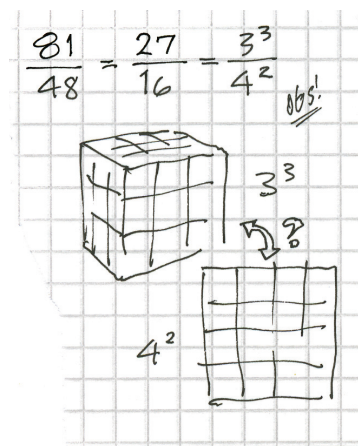 81/48 = 27/16 = 3³/4²
obs!
3³
?
4²